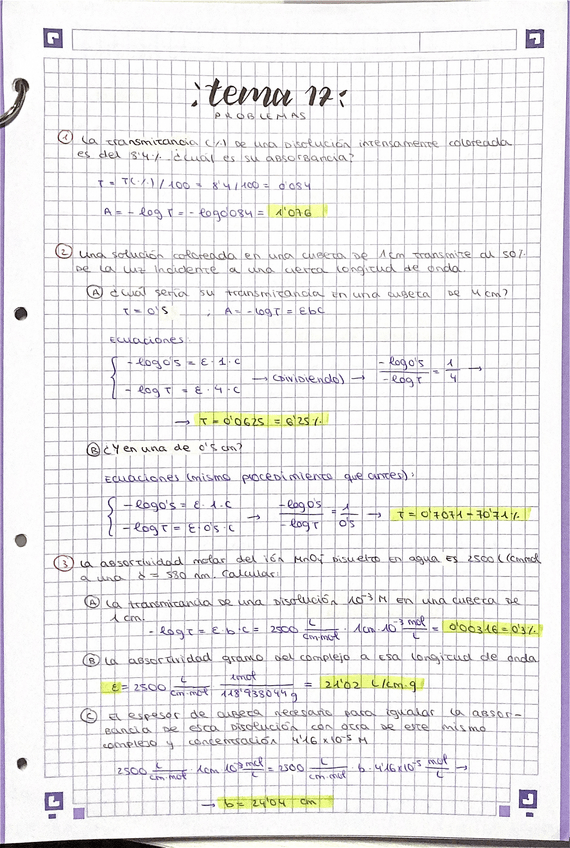 :tema 17:
PROBLEMAS
① La transmitancia (%) de una disolución intensamente coloreada
es del 8'4%. ¿Cuál es su absorbancia?
T = T(%) / 100 = 8'4 / 100 = 0'084
A = - log T = - log0'084 = 1'076
② una solución coloreada en una cubeta de 1 cm transmite al 50%
de la luz incidente a una cierta longitud de onda.
Ⓐ ¿Cuál sería su transmitancia en una cubeta de 4 cm?
T = 0'5 , A = - log T = εbC
Ecuaciones:
- log0'5 = ε · 1 · C
- log T = ε · 4 · C
→ (dividiendo) → - log0'5 / - log T = 1/4 →
→ T = 0'0625 = 6'25%
Ⓑ ¿Y en una de 0'5 cm?
Ecuaciones (mismo procedimiento que antes):
- log0'5 = ε · 1 · C
- log T = ε · 0'5 · C
→ - log0'5 / - log T = 1/0'5 → T = 0'7071 - 70'71%
③ La absortividad molar del ión MnO₄⁻ disuelto en agua es 2500 L/(cm·mol
a una δ = 530 nm. Calcular:
Ⓐ La transmitancia de una disolución 10⁻³ M en una cubeta de
1 cm.
- log T = ε · b · C = 2500 L/cm·mol · 1cm · 10⁻³ mol/L = 0'00316 = 0'3%
Ⓑ La absortividad gramo del complejo a esa longitud de onda
ε = 2500 L/cm·mol · 1mol/118'938044g = 21'02 L/cm·g
Ⓒ El espesor de cubeta necesario para igualar la absor-
bancia de esta disolución con otra de este mismo
complejo y concentración 4'16 x 10⁻⁵ M
2500 L/cm·mol · 1cm 10⁻³ mol/L = 2500 L/cm·mol · b · 4'16x10⁻⁵ mol/L →
→ b = 24'04 cm